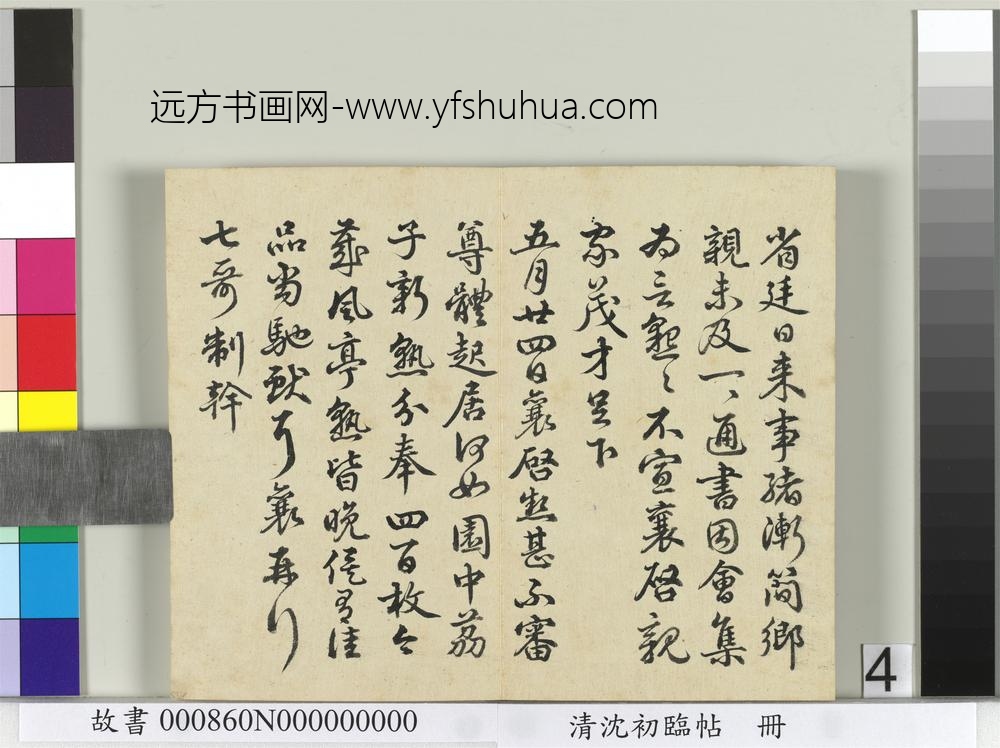 远方书画网-www.yfshuhua.com
省廷日来事緒漸簡鄉
親未及一一通書因會集
為言懇懇不宣襄啓親
家茂才足下
五月廿四日襄啓熱甚不審
尊體起居何如園中荔
子新熟分奉四百枚
風亭熟皆晚俟有佳
品當馳獻耳襄再行
七哥制幹
4
故書 000860N000000000
清沈初臨帖 冊